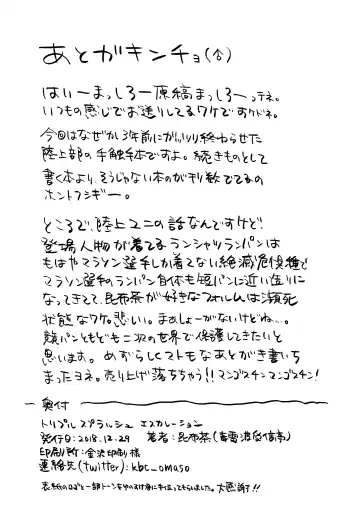 あとがキンチョ(合)
はいーまっしろー原稿まっしろーってネ。
いつもの感じでお送りしてるワケですケドネ。
今回はなぜか3年前にガッツリ終わらせた
陸上部の手触本ですよ。続きものとして
書く本より、そうじゃない本のが刊数でてるの
ホントフシギー。
ところで、陸上ユニの話なんですケド!
登場人物が着てるランシャツランパンは
もはやマラソン選手しか着てない絶滅危惧種で
マラソン選手のランパン自体も短パンに近い造りに
なってきてて、昆布茶が好きなフォルムは瀕死
状態なワケ。悲しい。まぁしょーがないけどね…。
競パンともども二次の世界で保護してきたいと
思います。めずらしくマトモなあとがき書いち
まったヨネ。売り上げ落ちちゃう!!マンゴスチンマンゴスチン!
奥付
トリプル スプラッシュ エスカレーション
発行日:2018.12.29 著者:昆布茶(毒電波発信亭)
印刷所:金沢印刷様
連絡先(twitter):kbc_omaso
表紙の
大感謝!!